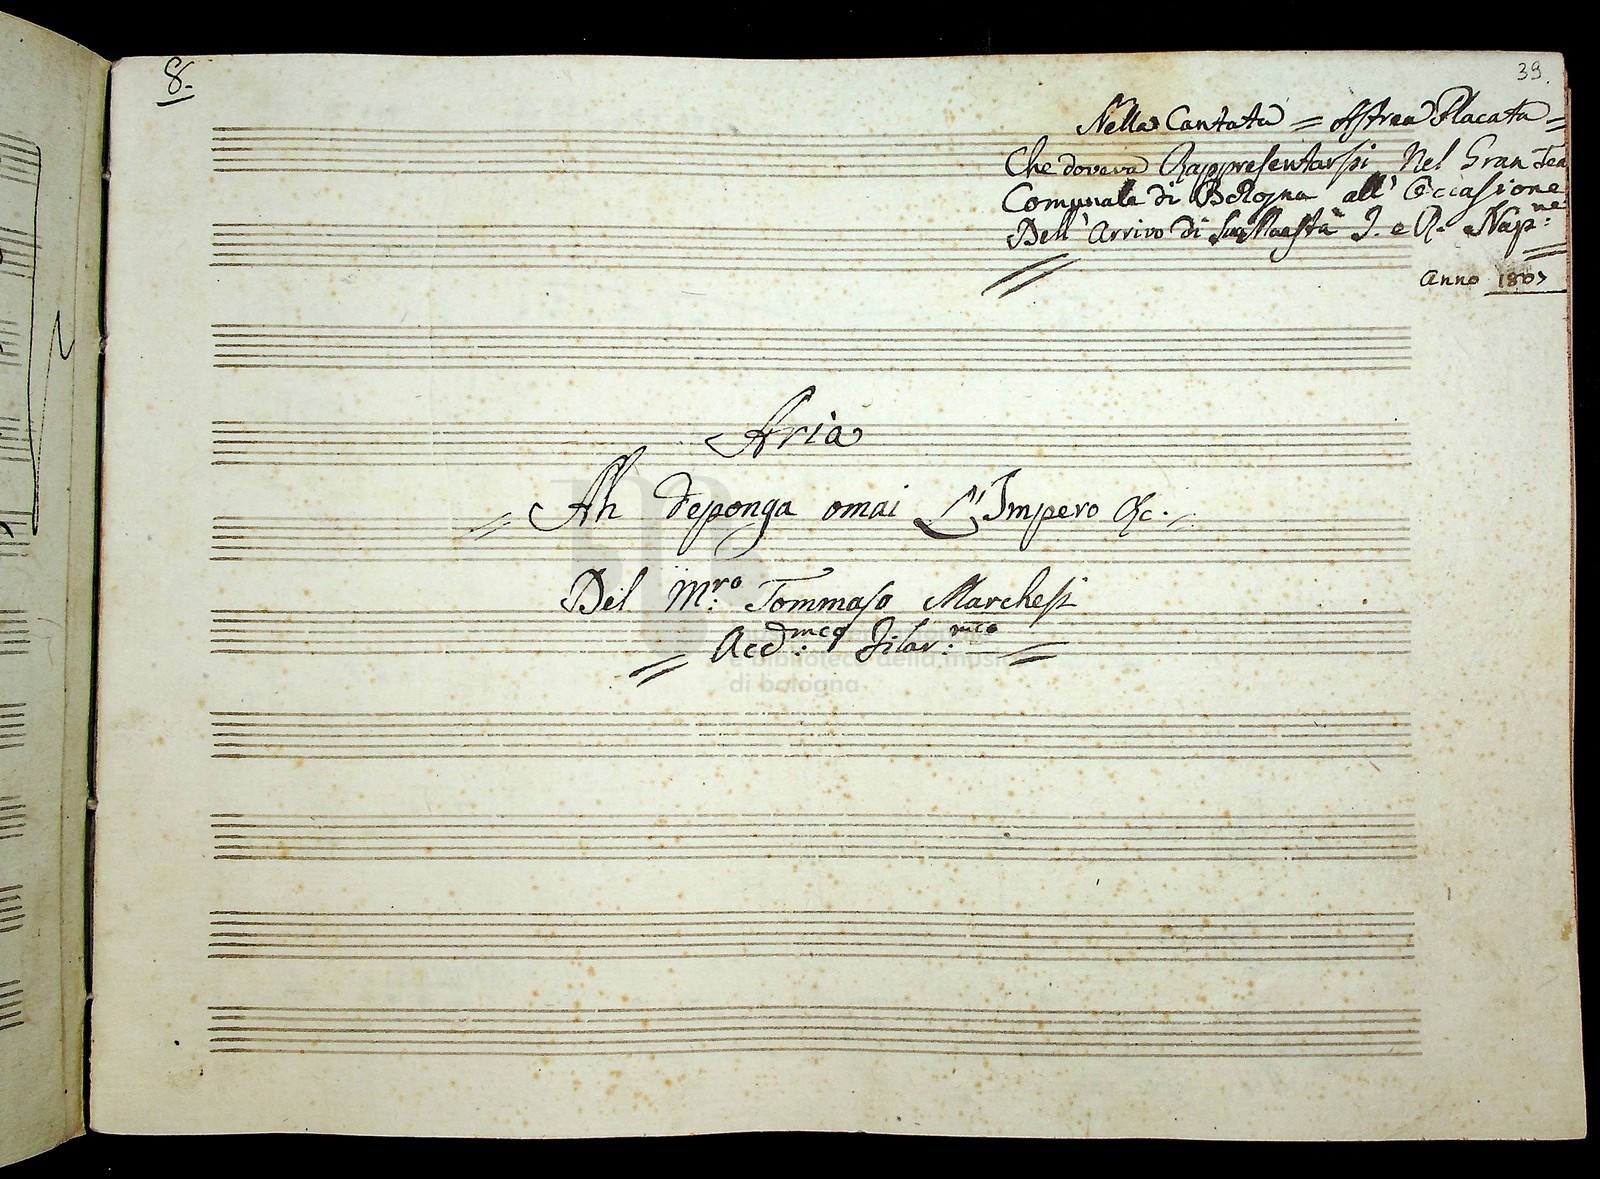 8.
39.
Nella Cantata = Astrea Placata =
Che doveva Rappresentarsi Nel Gran Tea
Comunale di Bologna all' Occasione
Dell' Arrivo di Sua Maestà I. e R. Nap:ne
Anno 1807
Aria
= Ah deponga omai L'Impero &c. =
Del M:ro Tommaso Marchesi
= Accd:mco Filar:mco =
e biblioteca della musica
di bologna